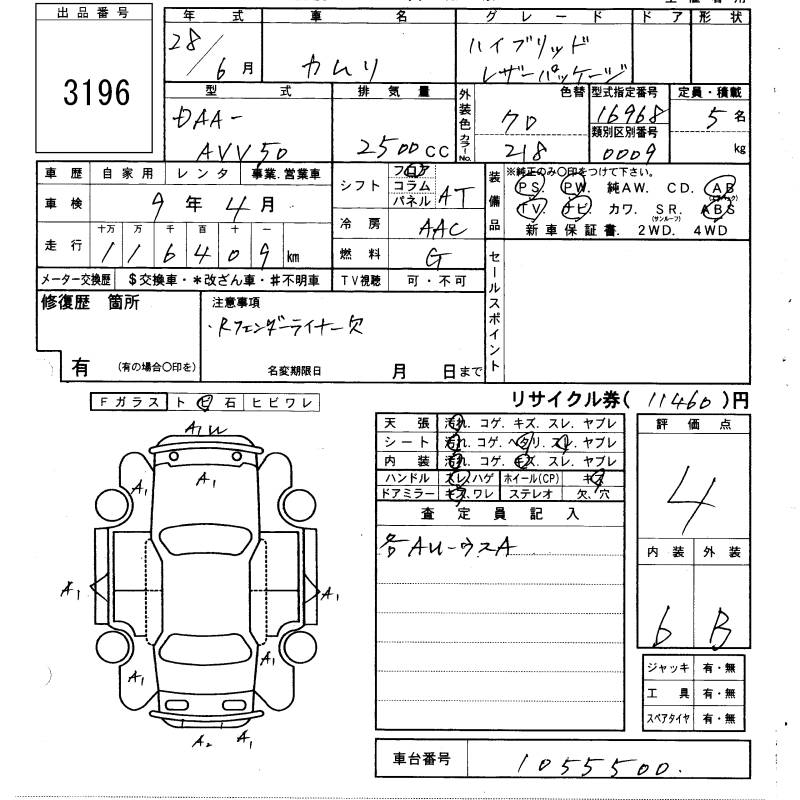 出品番号
3196
年式 車名 グレード ドア 形状
28/6月 カムリ ハイブリッド
レザーパッケージ
型式 排気量 外装色 色替 型式指定番号 定員・積載
DAA- クロ 16968 5名
AVV50 2500CC カラーNo. 218 類別区別番号 kg
0009
車歴 自家用 レンタ 事業.営業車 シフト フロア AT 装備品 ※純正のみ○印をつけて下さい。
コラム PS. PW. 純AW. CD. AB
車検 9年4月 パネル (エアバック)
TV. ナビ. カワ. SR. ABS
十万 万 千 百 十 一 冷房 AAC (サンルーフ)
走行 116409km 燃料 G 新車保証書. 2WD. 4WD
メーター交換歴 $交換車・*改ざん車・#不明車 TV視聴 可・不可 セールスポイント
修復歴 箇所 注意事項
・Rフェンダーライナー欠
有 (有の場合○印を) 名変期限日 月 日まで
Fガラス ト ビ 石 ヒビワレ リサイクル券( 11460 )円
天張 汚れ. コゲ. キズ. スレ. ヤブレ 評価点
シート 汚れ. コゲ. ヘタリ. スレ. ヤブレ
内装 汚れ. コゲ. キズ. スレ. ヤブレ 4
ハンドル スレ.ハゲ ホイール(CP) キズ
ドアミラー キズ.ワレ ステレオ 欠.穴
査定員記入
各AU-ウスA
内装 外装
b B
A1U
A1
A1 A1
A1 A1
A1 A1
A2 A1
ジャッキ 有・無
工具 有・無
スペアタイヤ 有・無
車台番号 1055500.